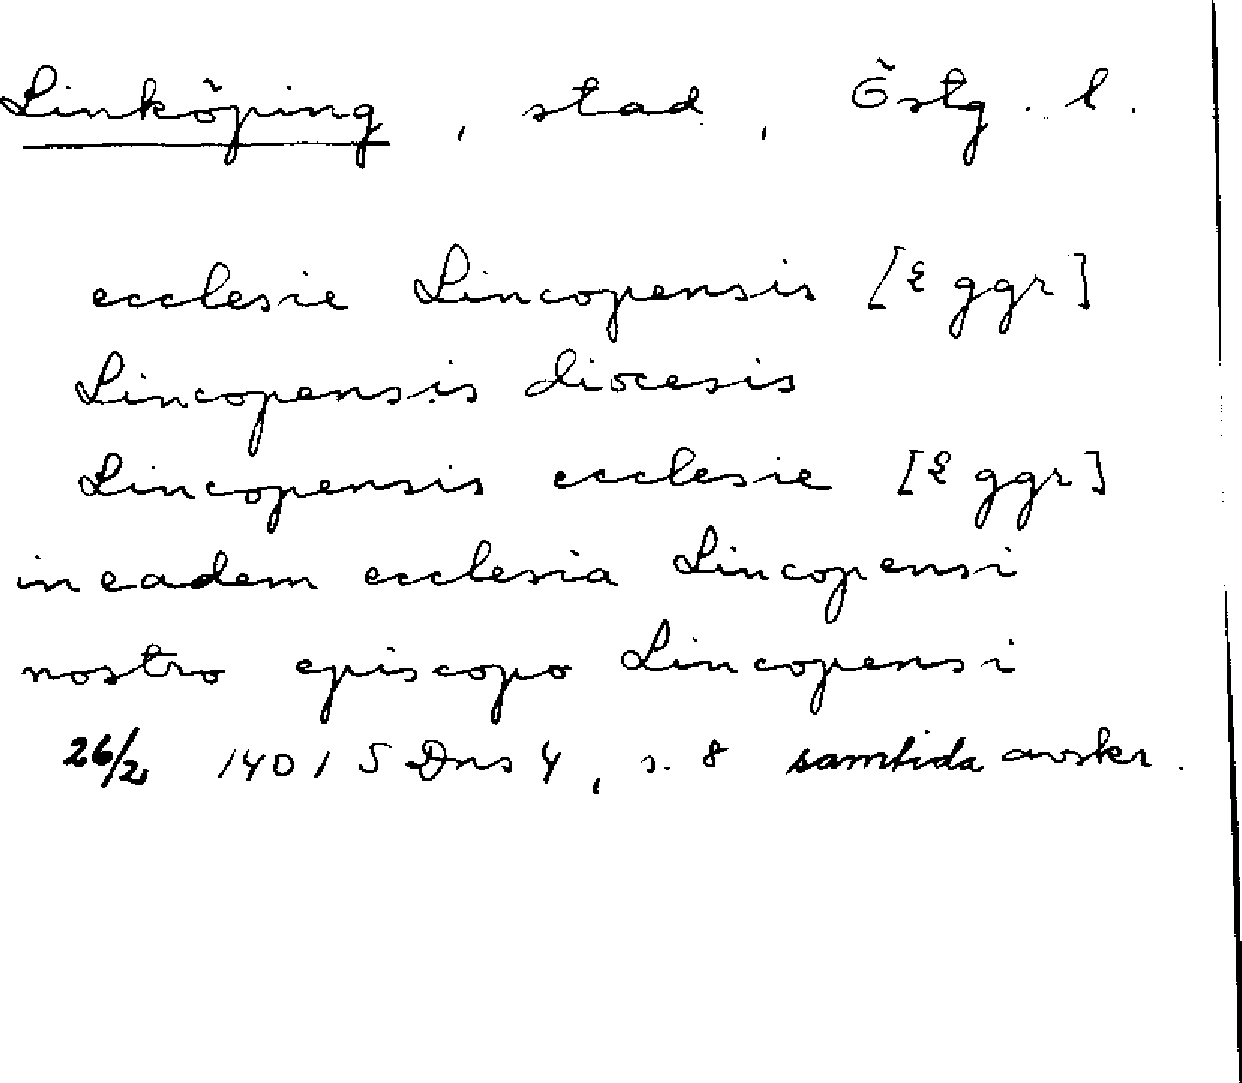 Linköping, stad, Östg. l.
ecclesie Lincopensis [2 ggr]
Lincopensis diocesis
Lincopensis ecclesie [2 ggr]
in eadem ecclesia Lincopensi
nostro episcopo Lincopensi
26/2 1401 SDns 4, s. 8 samtida avskr.